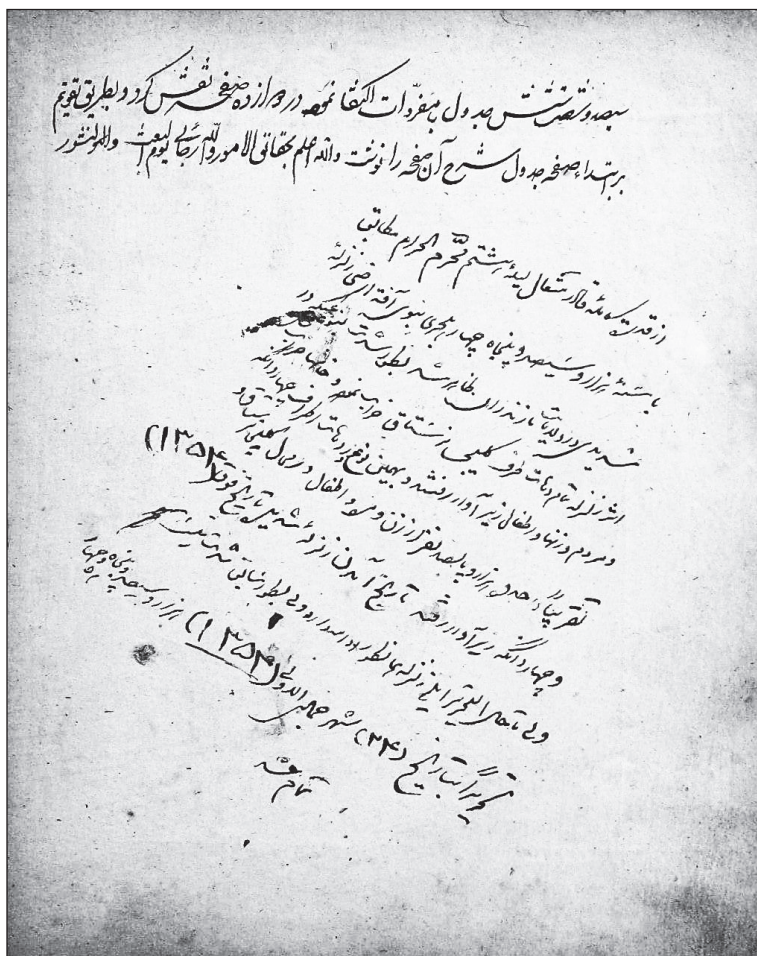 سیصد و شصت و شش جدول بمفردات اکتفا نموده در دوازده صفحه نقش کرد و بطریق تقویم
بر ابتداء صفحه جدول شرح آن صفحه را نوشت والله اعلم بحقائق الامور و الیه رجائی لیوم البعث والنشور
از قدرت کامله قادر متعال لیله هشتم محرم الحرام مطابق
با سنه هزار و سیصد و پنجاه چهار هجری نبوی آفة ارضی زلزله
شدیدی در ولایات مازندران ظاهر شد بطور شدت بنوعیکه در
اثر زلزله تمام دهات طرف کلیجان رستاق خراب نموده و خانها خراب
و مردم و زنها و اطفال زیر آوار رفتند و بهمین نوع دهات اطراف چهاردانگه
تقریباً حدود هزار و پانصد نفر از زن و مرد و اطفال و رجال کلیجان رستاق و
و چهاردانگه زیر آوار رفته تاریخ آمدن زلزله شدید بتاریخ فوق (۱۳۵۴)
ولی تا حال التحریر زلزله همانطور ادامه دارد ولی بطور شدت نیست
تحریراً بتاریخ (۲۴) شهر جمادی الاولی (۱۳۵۴) هزار و سیصد و پنجاه و چهار
تمام شد